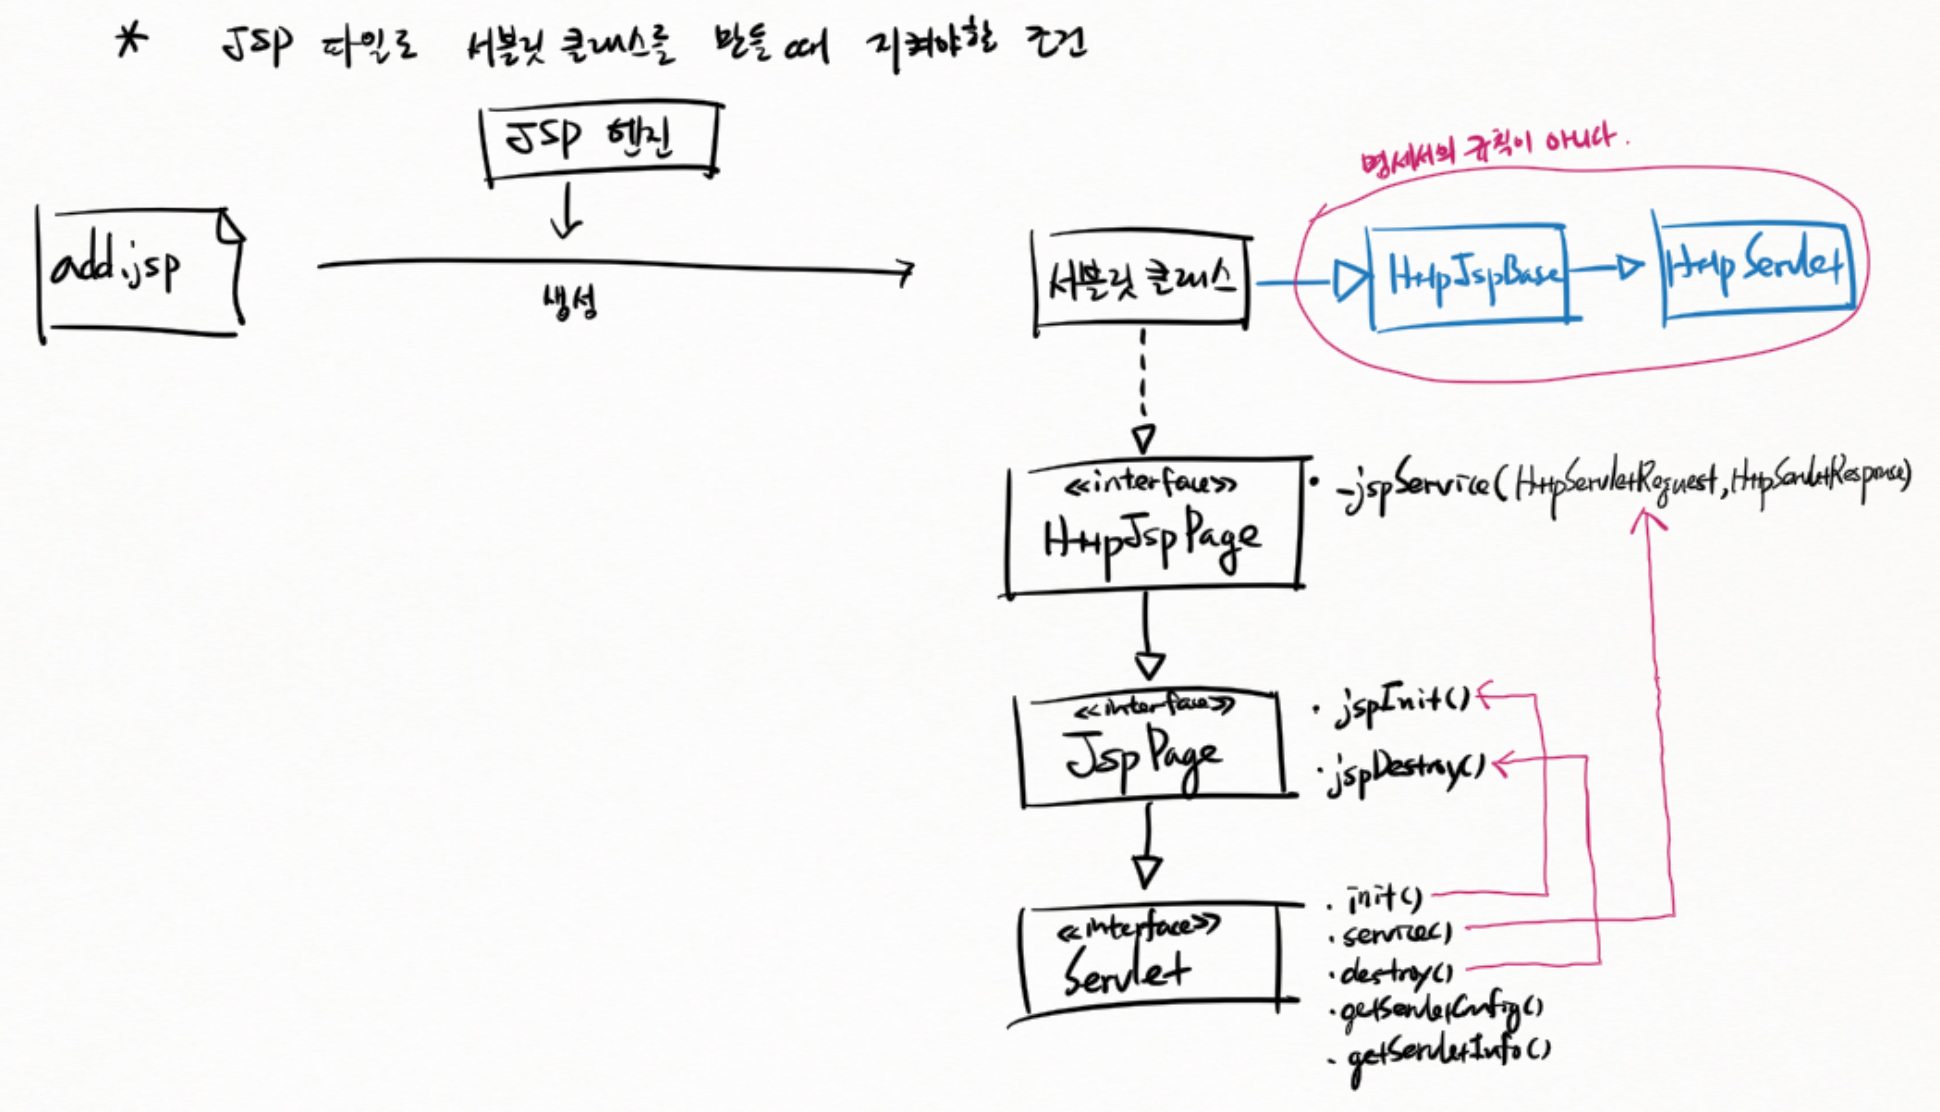 * JSP 파일로 서블릿 클래스를 만들 때 지켜야할 조건
JSP 엔진
명세서의 규칙이 아니다.
add.jsp
생성
서블릿 클래스
HttpJspBase
HttpServlet
<<interface>>
HttpJspPage
• _jspService(HttpServletRequest, HttpServletResponse)
<<interface>>
JspPage
• jspInit()
• jspDestroy()
<<interface>>
Servlet
• init()
• service()
• destroy()
• getServletConfig()
• getServletInfo()